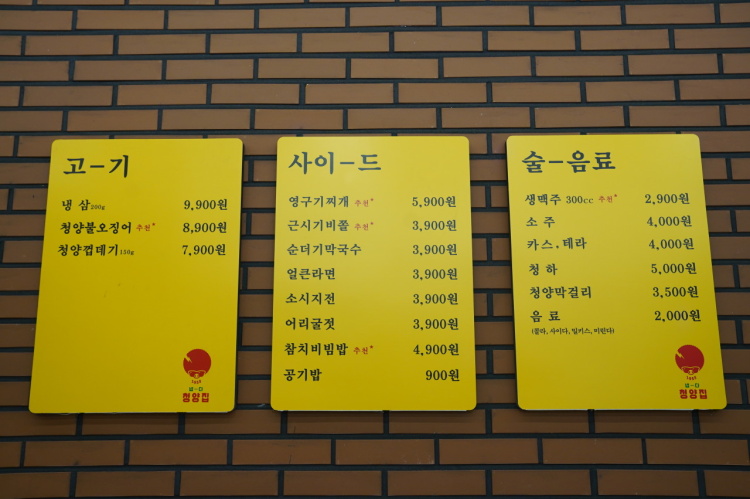 고-기
냉 삼 200g 9,900원
청양불오징어 추천* 8,900원
청양껍데기 150g 7,900원
1998
청양집
사이-드
영구기찌개 추천* 5,900원
근시기비쫄 추천* 3,900원
순더기막국수 3,900원
얼큰라면 3,900원
소시지전 3,900원
어리굴젓 3,900원
참치비빔밥 추천* 4,900원
공기밥 900원
술-음료
생맥주 300cc 추천* 2,900원
소 주 4,000원
카스, 테라 4,000원
청 하 5,000원
청양막걸리 3,500원
음 료 2,000원
(콜라, 사이다, 밀키스, 미린다)
청양집